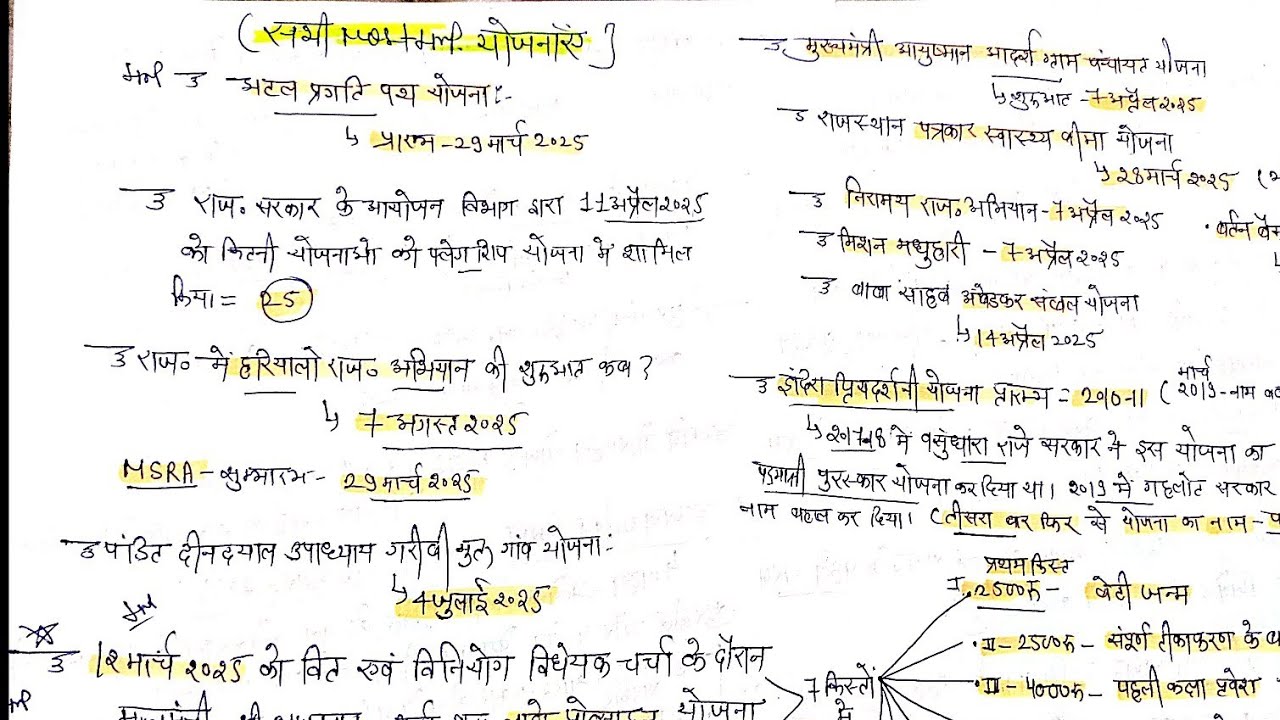 (सभी most imp. योजनाएँ)
imp → अटल प्रगति पथ योजना :-
↳ प्रारम्भ - 29 मार्च 2025
→ राज० सरकार के आयोजन विभाग द्वारा 11 अप्रैल 2025
को कितनी योजनाओ को फ्लेग शिप योजना मे शामिल
किया = 25
→ राज० में हरियालो राज० अभियान की शुरुआत कब ?
↳ 7 अगस्त 2025
MSRA - शुभारम्भ - 29 मार्च 2025
→ पंडित दीनदयाल उपाध्याय गरीबी मुक्त गांव योजना :-
↳ 4 जुलाई 2025
imp
→ 12 मार्च 2025 को वित एवं विनियोग विधेयक चर्चा के दौरान
योजना
→ मुख्यमंत्री आयुष्मान आदर्श ग्राम पंचायत योजना
↳ शुरुआत - 7 अप्रैल 2025
→ राजस्थान पत्रकार स्वास्थ्य बीमा योजना
↳ 28 मार्च 2025
→ निरामय राज० अभियान - 7 अप्रैल 2025
→ मिशन मधुहारी - 7 अप्रैल 2025
• बर्तन बैं
→ बाबा साहब अंबेडकर संबल योजना
↳ 14 अप्रैल 2025
→ इंदिरा प्रियदर्शनी योजना प्रारम्भ = 2010-11 ( मार्च 2019 - नाम
↳ 2017-18 में वसुंधरा राजे सरकार ने इस योजना का
पद्माक्षी पुरस्कार योजना कर दिया था। 2019 में गहलोत सरकार
नाम बहाल कर दिया। (तीसरा बार फिर से योजना का नाम - प
7 किस्तों में
प्रथम किस्त
I. 2500रु - बेटी जन्म
• II - 2500रु - संपूर्ण टीकाकरण के
• III - 4000रु - पहली कक्षा प्रवेश